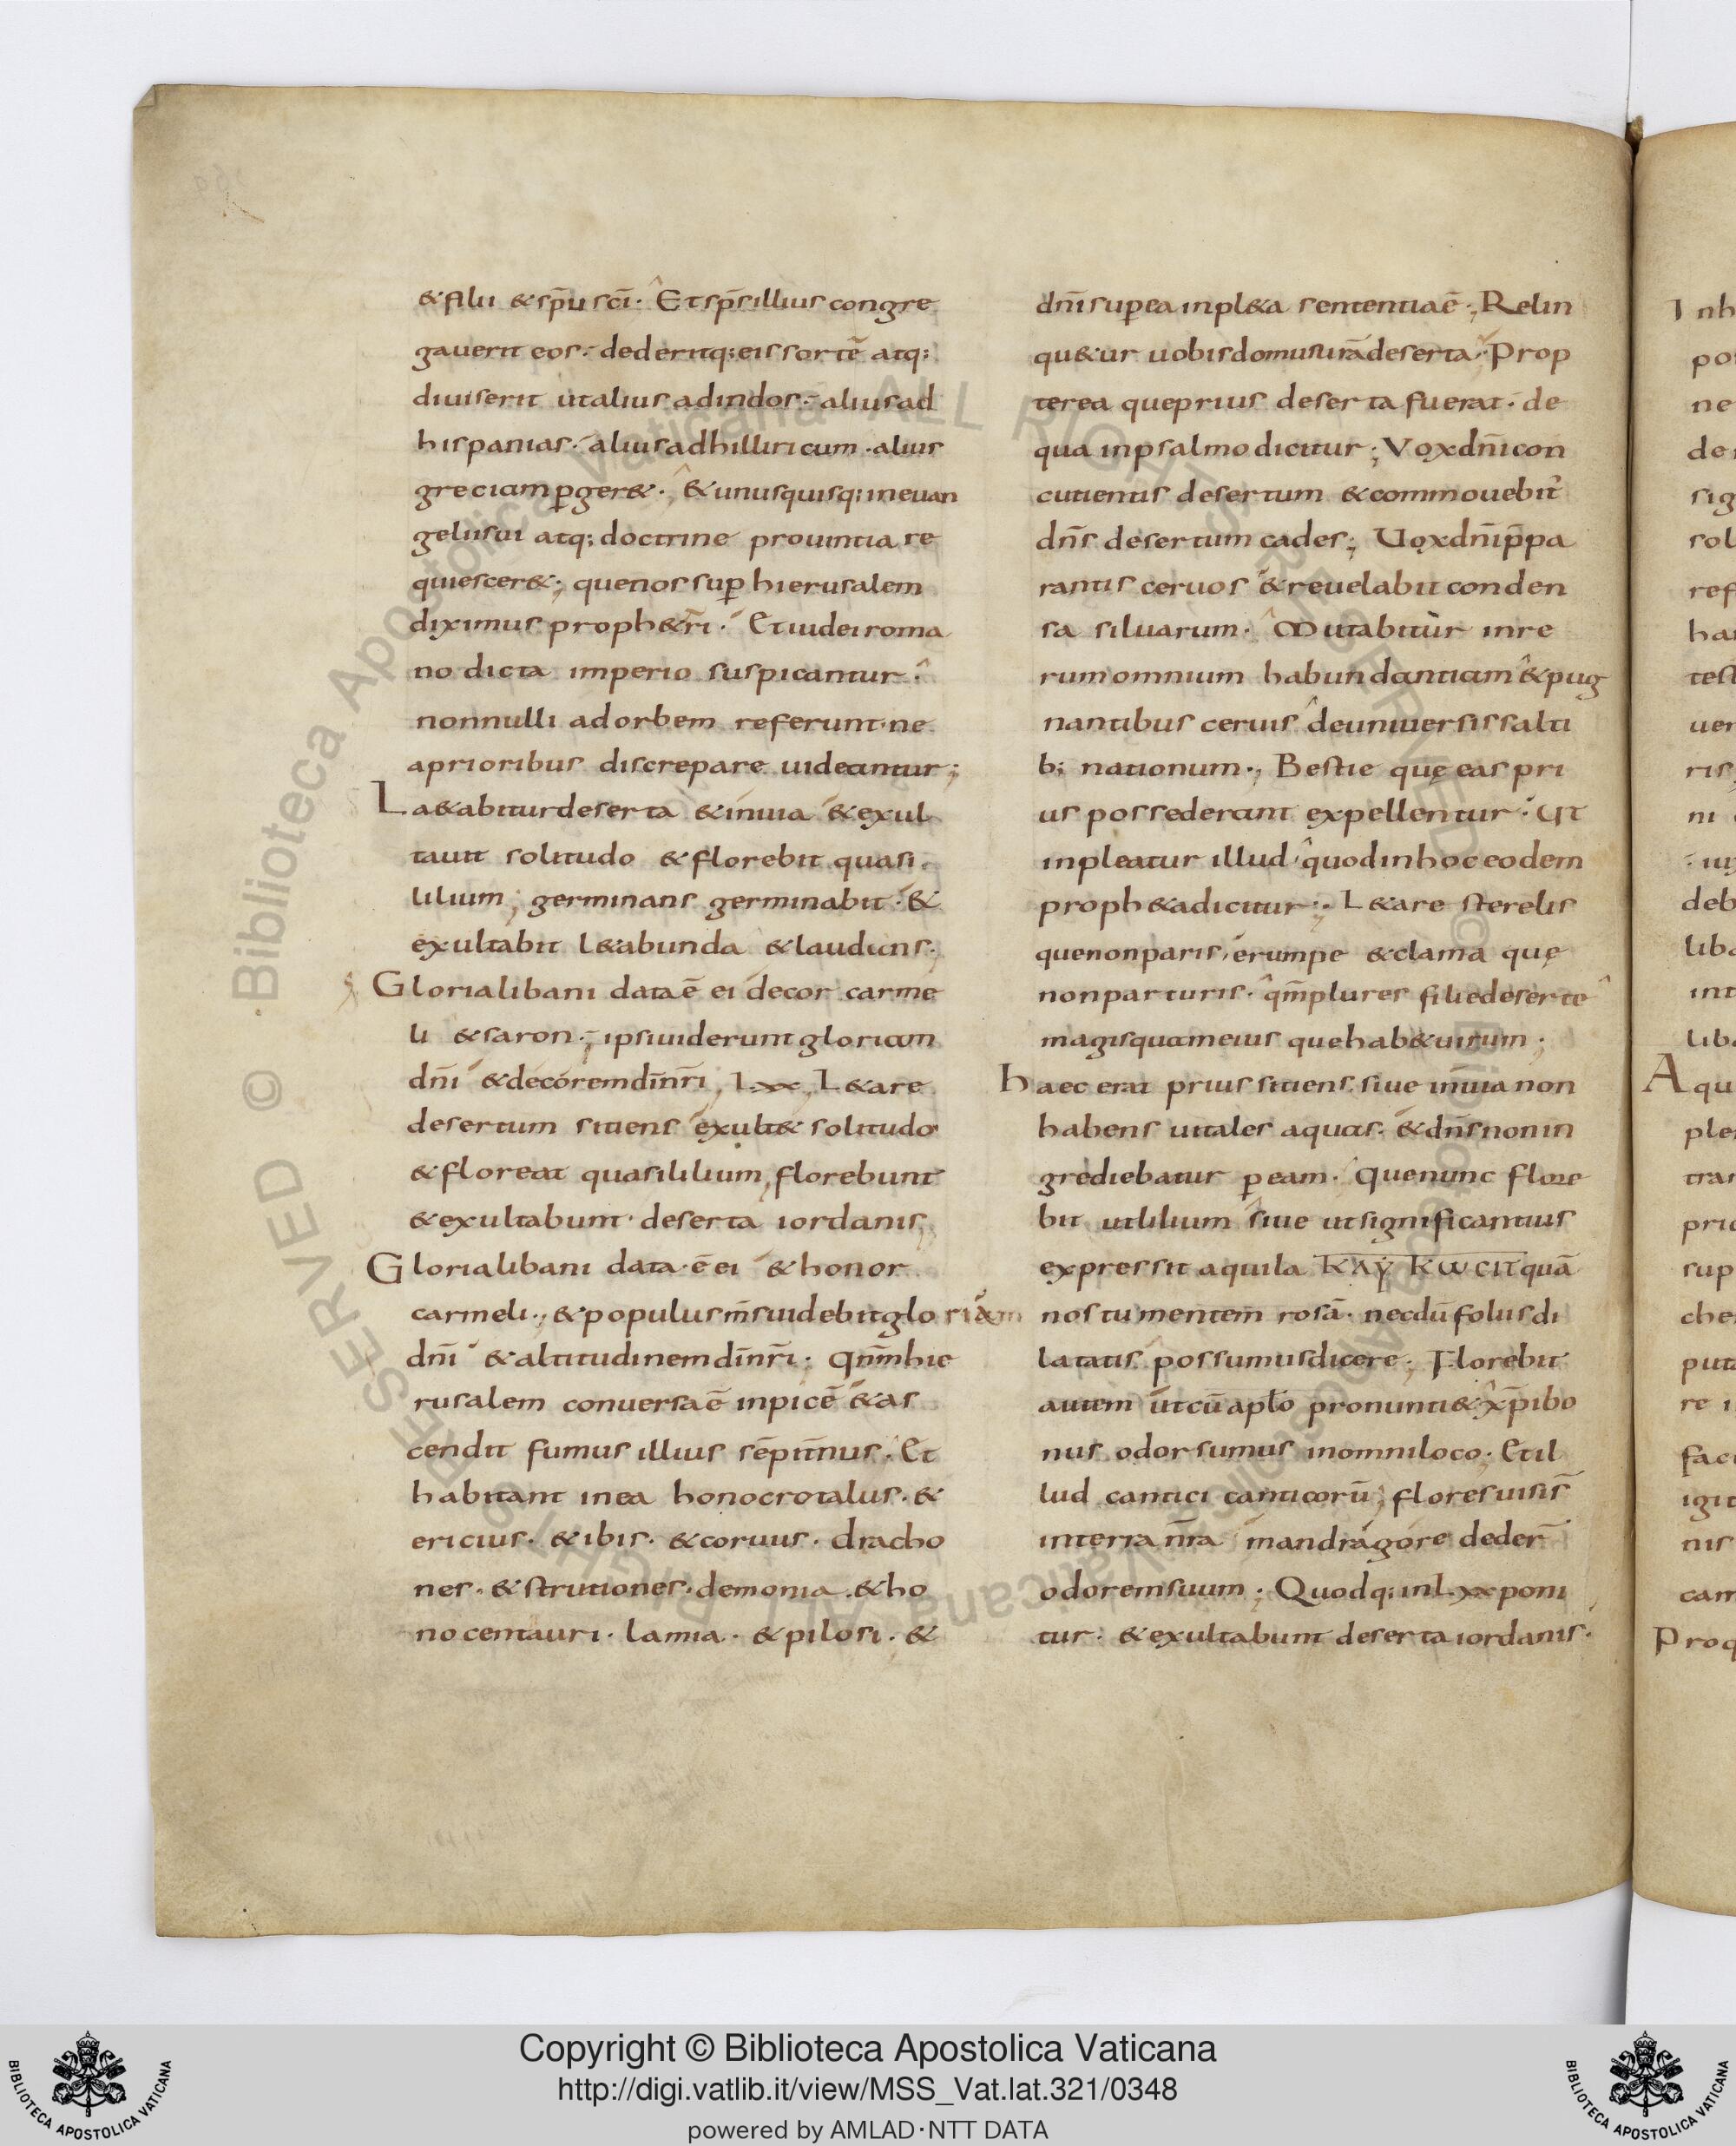 & filii & sp̄u sc̄i · Et sp̄s illius congre
gauerit eos · dederitq; eis sortē atq;
diuiserit ut alius ad indos · alius ad
hispanias · alius ad hilliricum · alius
greciam ꝑger& · & unusquisq; in euan
gelii sui atq; doctrine prouintia re
quiescer&; que nos suꝑ hierusalem
diximus proph&r̄i · Et iudei roma
no dicta imperio suspicantur ·
nonnulli ad orbem referunt · ne
a prioribus discrepare uideantur;
La&abitur deserta & inuia & exul
tauit solitudo & florebit quasi
lilium; germinans germinabit · &
exultabit l&abunda & laudans ·
Gloria libani data ē ei decor carme
li & saron ·; ipsi uiderunt gloriam
dn̄i & decorem dī nr̄i, Lxx, L&are
desertum sitiens exult& solitudo
& floreat quasi lilium, florebunt
& exultabunt · deserta iordanis;
Gloria libani data · ē ei & honor
carmeli ·; & populus m̄s uidebit gloriam
dn̄i & altitudinem dī nr̄i; Qnm̄ hie
rusalem conuersa ē in picē & as
cendit fumus illius sēpit̄nus · Et
habitant in ea honocrotalus · &
ericius · & ibis · & coruus · dracho
nes · & strutiones · demonia · & ho
nocentauri · lamia · & pilosi · &
dn̄i super ea inpl&a sententia ē ·; Relin
qu&ur uobis domus ur̄a deserta · Prop
terea que prius deserta fuerat · de
qua in psalmo dicitur; Vox dn̄i con
cutientis desertum & commouebit
dn̄s desertum cades; Uox dn̄i p̄pa
rantis ceruos & reuelabit conden
sa siluarum · Mutabitur in re
rum omnium habundantiam & pug
nantibus ceruis de uniuersis salti
b; nationum ·; Bestie quę eas pri
us possederant expellentur · Ut
inpleatur illud quod in hoc eodem
proph&a dicitur ·; L&are sterelis
que non paris, erumpe & clama quę
non parturis · qm̄ plures filie deserte
magis quam eius que hab& uirum;
haec erat prius sitiens siue inuia non
habens uitales aquas · & dn̄s non in
grediebatur ꝑ eam · Que nunc flore
bit ut lilium siue ut significantius
expressit aquila ΚΑΥ ΚωCΙΤ quā
nos tumentem rosā · necdū foliis di
latatis possumus dicere; Florebit
autem ut cū apl̄o pronunti& x̄p̄i bo
nus odor sumus in omni loco; Et il
lud cantici canticorū; flores uisi s̄
in terra nr̄a mandragore deder̄
odorem suum; Quodq; in Lxx poni
tur · & exultabunt deserta iordanis ·
Copyright © Biblioteca Apostolica Vaticana
http://digi.vatlib.it/view/MSS_Vat.lat.321/0348
powered by AMLAD·NTT DATA